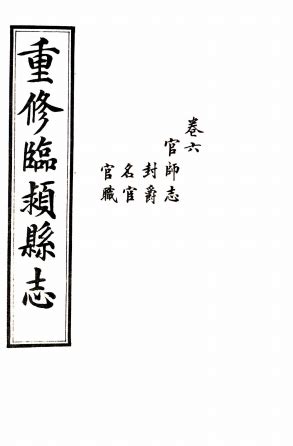 重修臨潁縣志
卷六
官師志
封爵
名宦
官職